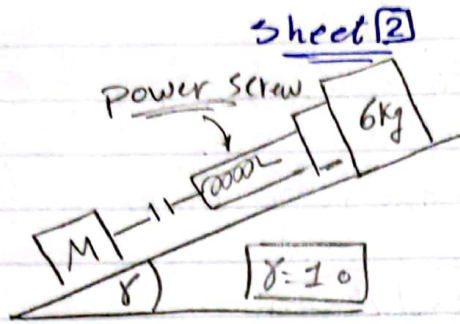 Sheet 2
power screw
6kg
M
γ
γ = 10